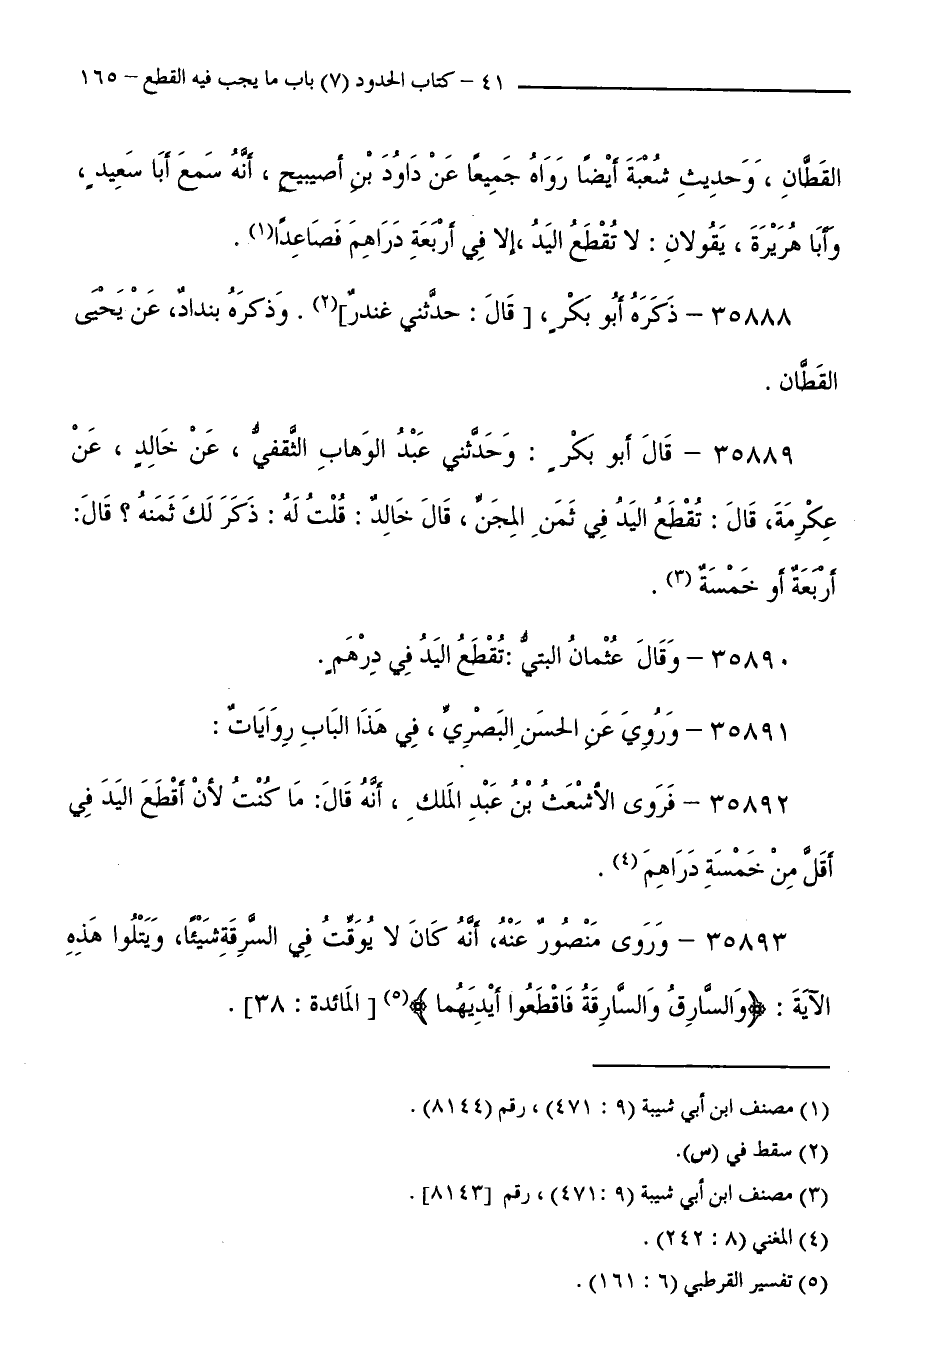 ٤١ – كتاب الحدود (٧) باب ما يجب فيه القطع – ١٦٥
القَطَّانِ ، وَحَدِيثِ شُعْبَةَ أَيْضًا رَوَاهُ جَمِيعًا عَنْ دَاوُدَ بْنِ أصيبيح ، أَنَّهُ سَمعَ أَبَا سَعِيدٍ ،
وَأَبَا هُرَيْرَةَ ، يَقُولانِ : لا تُقْطَعُ اليَدُ ،إلا فِي أَرْبَعَةِ دَرَاهِمَ فَصَاعِدًا(١) .
٣٥٨٨٨ – ذَكَرَهُ أَبُو بَكْرٍ ، [ قَالَ : حدَّثني غندرٌ](٢) . وَذكرَهُ بندادٌ، عَنْ يَحْيَى
القَطَّان .
٣٥٨٨٩ – قَالَ أَبو بَكْرٍ : وَحَدَّثني عَبْدُ الوَهابِ الثَّقفيُّ ، عَنْ خَالِدٍ ، عَنْ
عِكْرِمَةَ، قَالَ : تُقْطَعُ اليَدُ فِي ثَمَنِ المِجَنِّ ، قَالَ خَالِدٌ : قُلْتُ لَهُ : ذَكَرَ لَكَ ثَمَنهُ ؟ قَالَ:
أَرْبَعَةٌ أَو خَمْسَةٌ (٣) .
٣٥٨٩٠ – وَقَالَ عُثْمانُ البتيُّ :تُقْطَعُ اليَدُ فِي دِرْهَمٍ.
٣٥٨٩١ – وَرُوِيَ عَنِ الحسَنِ البَصْرِيِّ ، فِي هَذَا البَابِ رِوَايَاتٌ :
٣٥٨٩٢ – فَرَوى الأَشْعَثُ بْنُ عَبْدِ المَلكِ ، أَنَّهُ قَالَ: مَا كُنْتُ لأَنْ أَقْطَعَ اليَدَ فِي
أَقَلَّ مِنْ خَمْسَةِ دَرَاهِمَ (٤) .
٣٥٨٩٣ – وَرَوى مَنْصُورٌ عَنْهُ، أَنَّهُ كَانَ لا يُوَقِّتُ فِي السَّرِقَةِ شَيْئًا، وَيَتْلُوا هَذِهِ
الآيَةَ : ﴿وَالسَّارِقُ وَالسَّارِقَةُ فَاقْطَعُوا أَيْدِيَهُما ﴾(٥) [ المَائدة : ٣٨] .
(١) مصنف ابن أبي شيبة (٩ : ٤٧١) ، رقم (٨١٤٤) .
(٢) سقط في (س).
(٣) مصنف ابن أبي شيبة (٩ :٤٧١) ، رقم [٨١٤٣] .
(٤) المغني (٨ : ٢٤٢) .
(٥) تفسير القرطبي (٦ : ١٦١) .